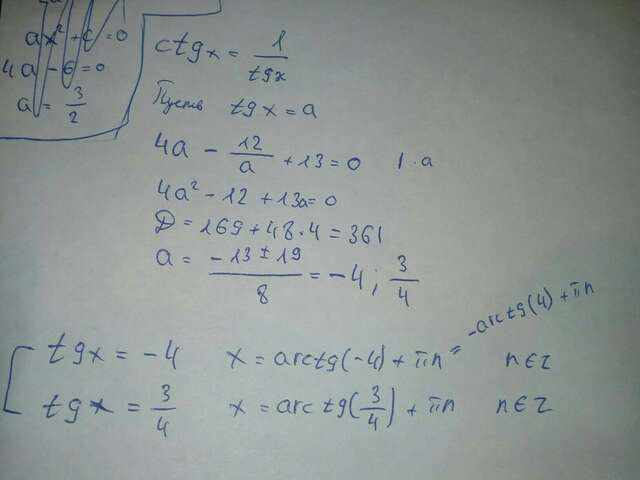 ax² + c = 0
4a - 6 = 0
a = 3/2
ctgx = 1/tgx
Пусть tgx = a
4a - 12/a + 13 = 0 | · a
4a² - 12 + 13a = 0
D = 169 + 48·4 = 361
a = (-13 ± 19)/8 = -4; 3/4
tgx = -4 x = arctg(-4) + πn = -arctg(4) + πn n∈z
tgx = 3/4 x = arctg(3/4) + πn n∈z